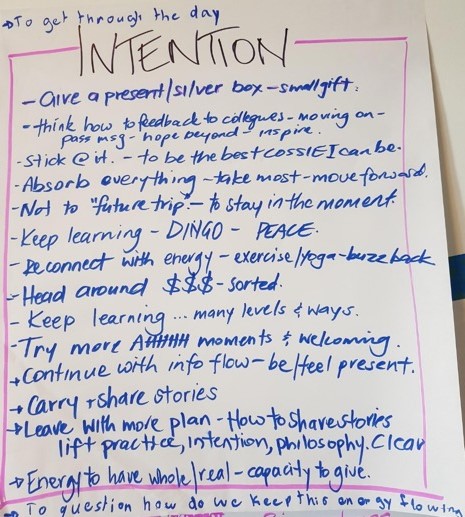 →To get through the day
INTENTION
- Give a present/silver box - small gift.
- think how to feedback to collegues - moving on -
pass msg - hope beyond - inspire.
- Stick @ it. - to be the best COSSIE I can be.
- Absorb everything - take most - move forward.
- Not to "future trip" - to stay in the moment.
- Keep learning - DINGO - PEACE.
- Reconnect with energy - exercise/yoga - buzz back
- Head around $$$ - sorted.
- Keep learning ... many levels & ways.
- Try more AHHHHH moments & welcoming.
→ Continue with info flow - be/feel present.
→ Carry + share stories
→ Leave with more plan - How to share stories
lift practice, intention, philosophy. Clear
→ Energy to have whole/real - capacity to give.
→ To question how do we keep this energy flowing